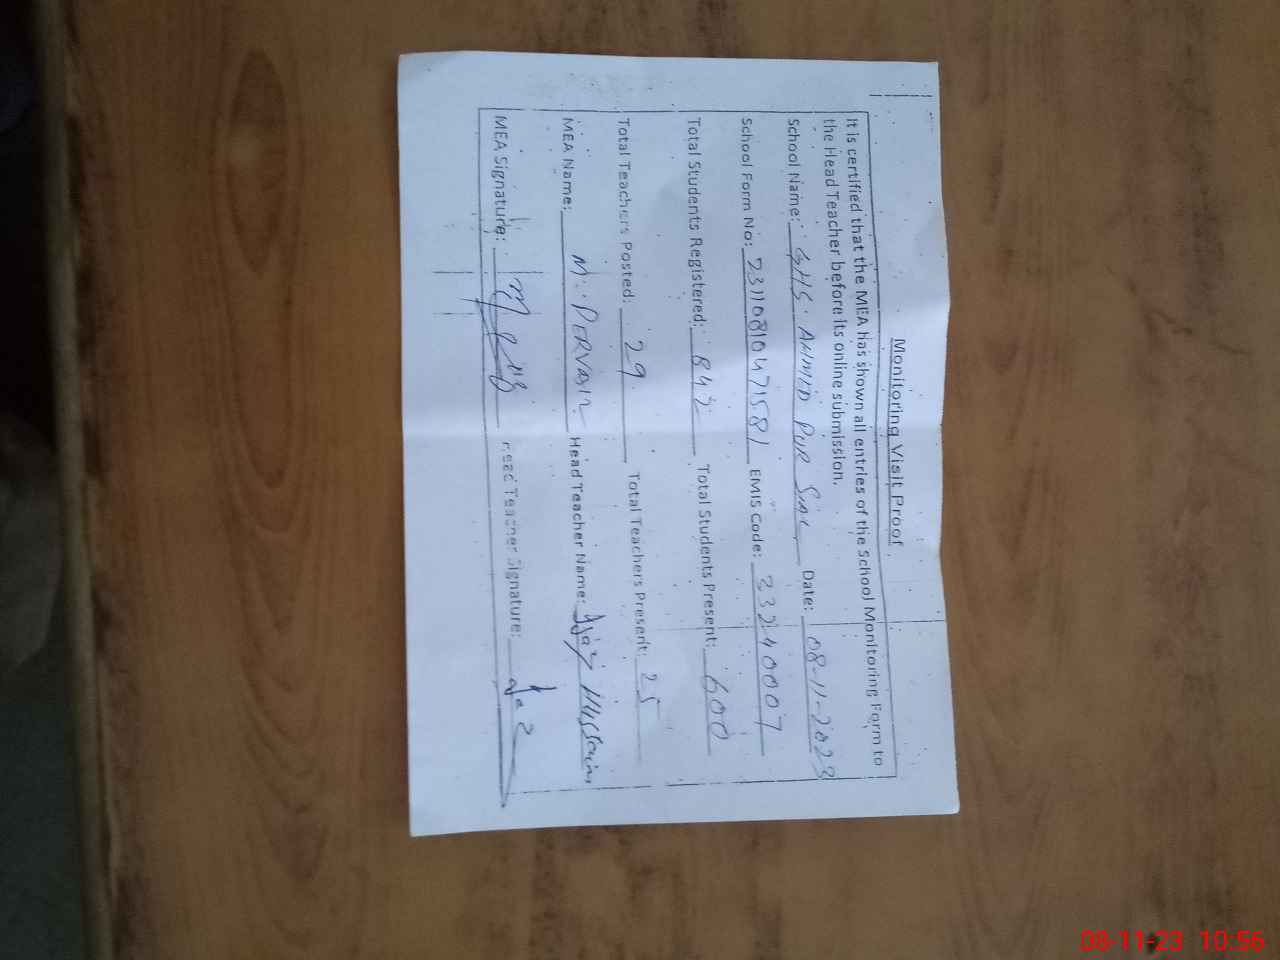 Monitoring Visit Proof
It is certified that the MEA has shown all entries of the School Monitoring Form to
the Head Teacher before its online submission.
School Name: GHS. AHMED PUR SIAL Date: 08-11-2023
School Form No: 23110810471581 EMIS Code: 33240007
Total Students Registered: 842 Total Students Present: 600
Total Teachers Posted: 29 Total Teachers Present: 25
MEA Name: M. PERVAIZ Head Teacher Name: Ijaz Hussain
MEA Signature: Head Teacher Signature:
08-11-23 10:56